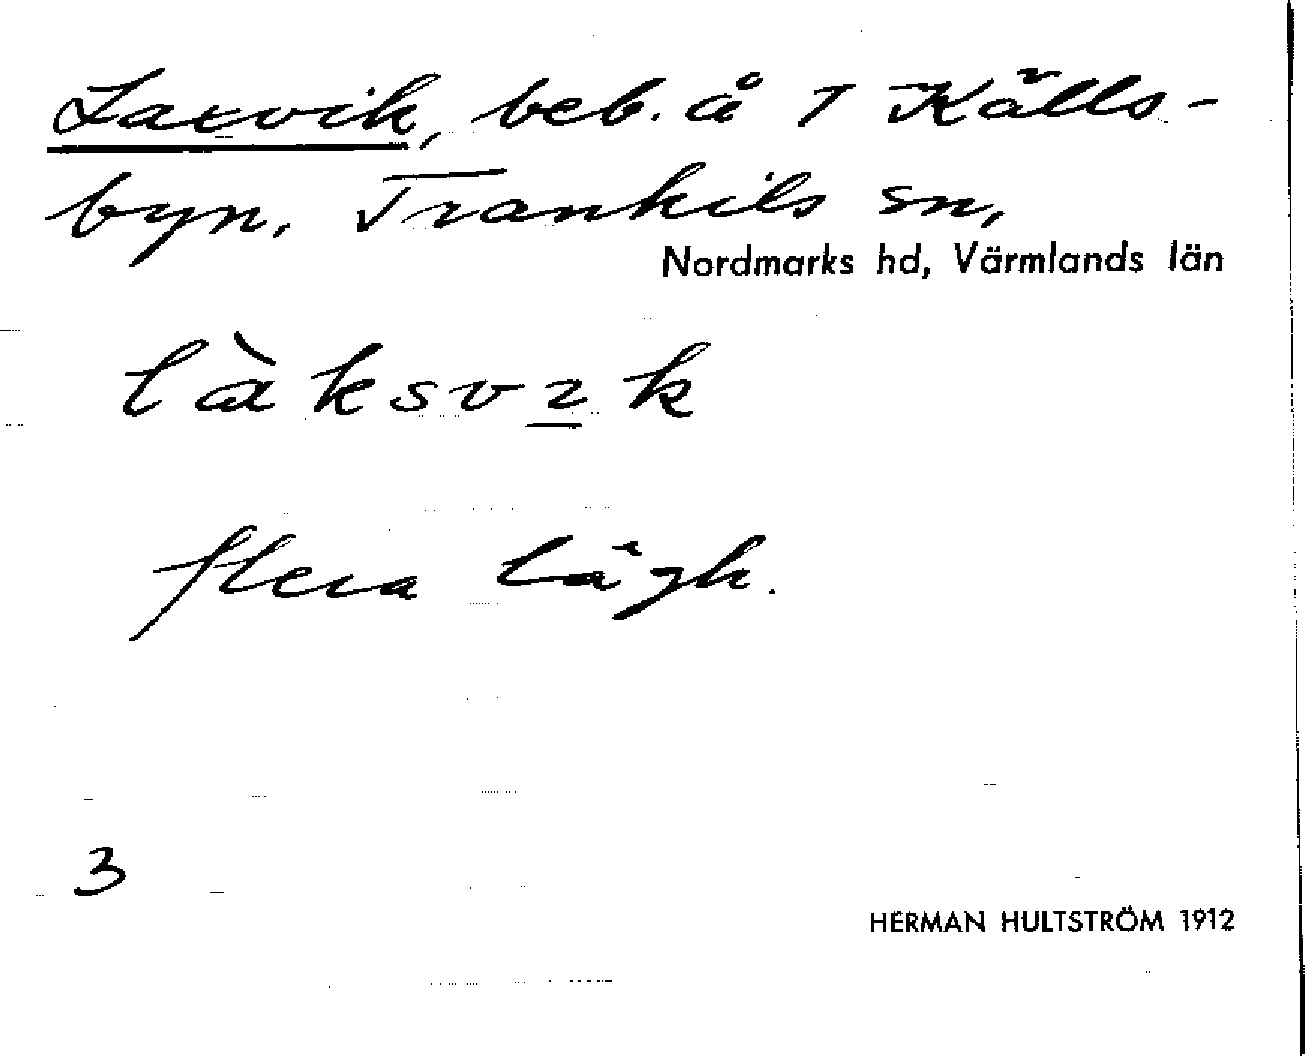 Laxvik, beb. å 1 Källs-
byn, Trankils sn,
Nordmarks hd, Värmlands län
làksvık
flera lägh.
3
HERMAN HULTSTRÖM 1912